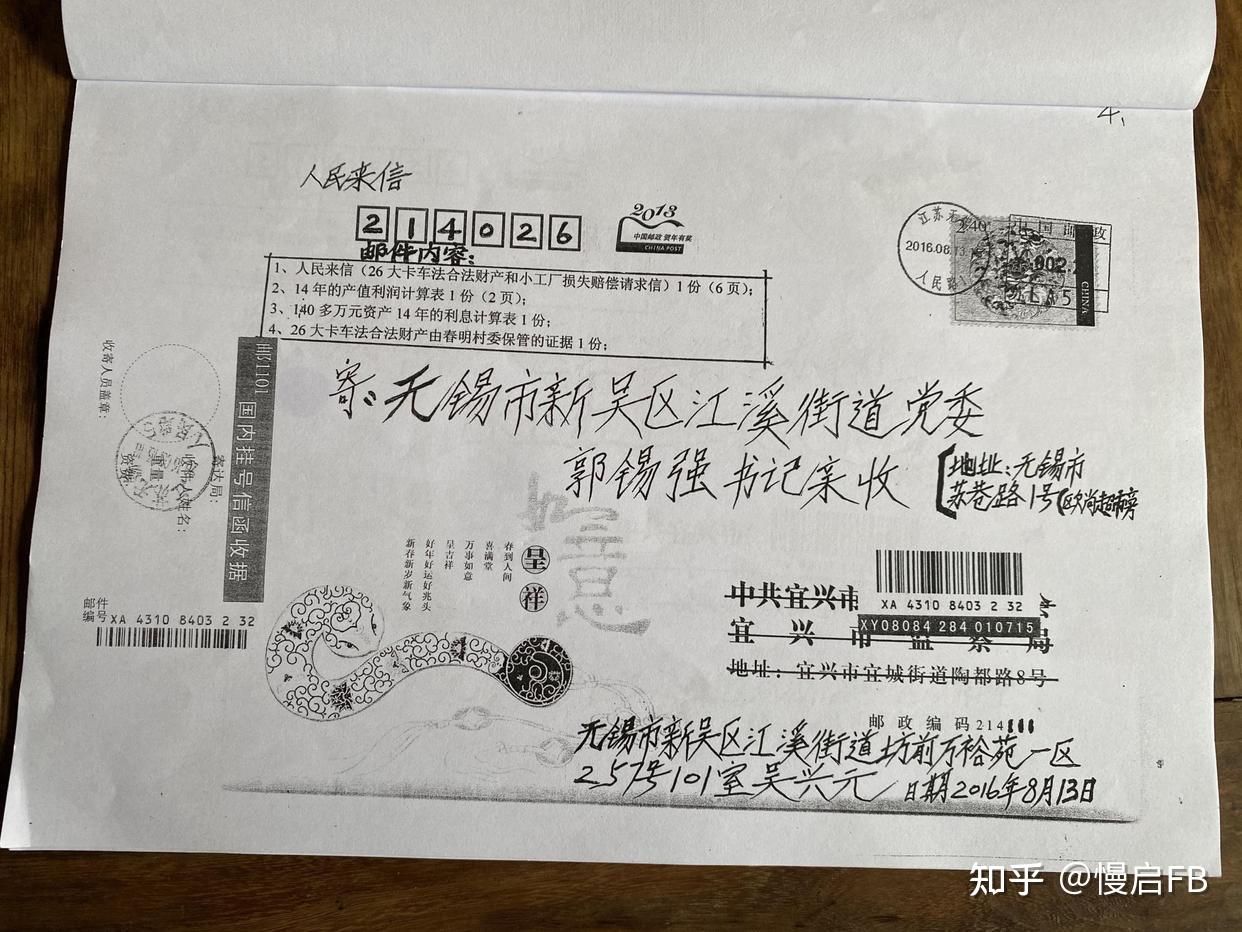 4、
人民来信
214026
2013
中国邮政 贺年有奖
CHINA POST
邮件内容：
1、人民来信（26大卡车法合法财产和小工厂损失赔偿请求信）1份（6页）；
2、14年的产值利润计算表1份（2页）；
3、140多万元资产14年的利息计算表1份；
4、26大卡车法合法财产由春明村委保管的证据1份；
2016.08.13
中国邮政
CHINA
寄：无锡市新吴区江溪街道党委
郭锡强书记亲收
地址：无锡市
苏巷路1号
收寄人员盖章：
邮1101 国内挂号信函收据
寄达局：
收件人姓名：
邮件
编号 XA 4310 8403 2 32
春到人间
喜满堂
万事如意
呈吉祥
好年好运好兆头
新春新岁新气象
呈
祥
XA 4310 8403 2 32
XY08084 284 010715
中共宜兴市
宜兴市监察局
地址：宜兴市宜城街道陶都路8号
邮政编码214
无锡市新吴区江溪街道坊前万裕苑一区
257号101室吴兴元 日期2016年8月13日
知乎 @慢启FB